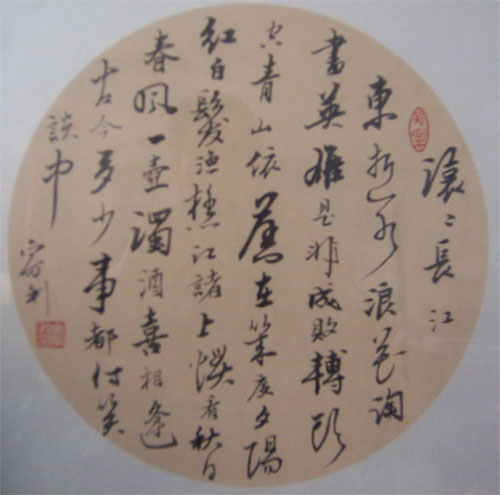 滾〻長江
東逝水浪花淘
盡英雄是非成敗轉頭
空青山依舊在幾度夕陽
紅白髮漁樵江諸上慣看秋月
春風一壺濁酒喜相逢
古今多少事都付笑
談中